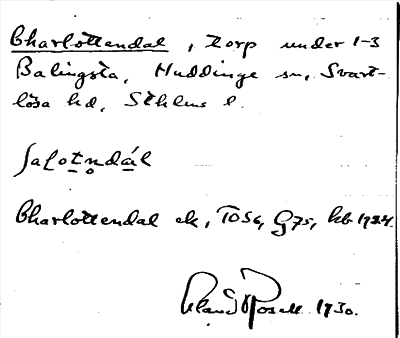 Charlottendal, torp under 1-3
Balingsta, Huddinge sn, Svart-
lösa hd, Sthlms l.
ʃaḷotn̥dál
Charlottendal ek, TOSe, G75, kb 1924.
Roselll 1930.